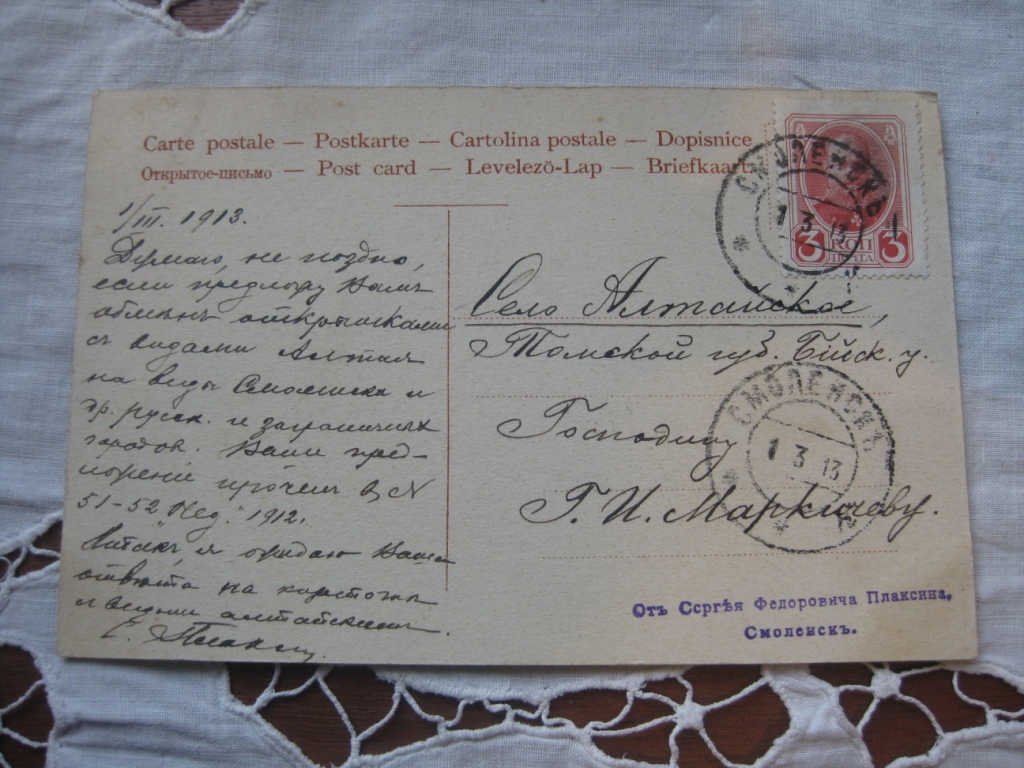 Carte postale — Postkarte — Cartolina postale — Dopisnice
Открытое-письмо — Post card — Levelezö-Lap — Briefkaart
1/III. 1913.
Думаю, не поздно,
если предложу Вамъ
обмѣнъ открытками
съ видами Алтая
на виды Смоленска и
др. русск. и заграничных
городов. Ваше пред-
ложеніе прочелъ в №
51-52 "Нед." 1912.
Итакъ, я ожидаю Ваше
отвѣта на карточкѣ
с видами алтайскими.
С. Плаксин
Село Алтайское,
Томской губ. Бійск. у.
Господину
Г. И. Маркичеву.
СМОЛЕНСКЪ
1 3 13
3 КОП 3
ПОЧТА
СМОЛЕНСКЪ
1 3 13
Отъ Сергѣя Федоровича Плаксина,
Смоленскъ.